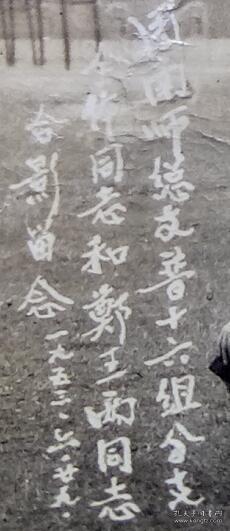 师总支普十六组分支
全体同志和郑王两同志
合影留念 一九五三·六·廿九·
孔夫子旧书网